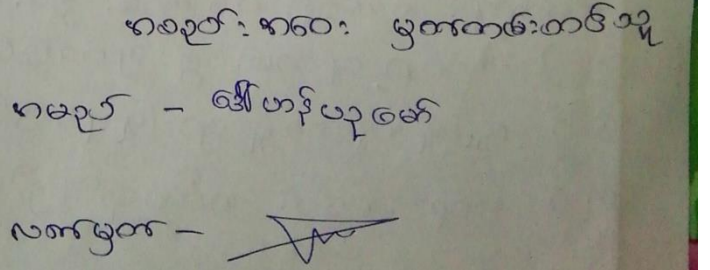 အစည်းအဝေး မှတ်တမ်းတင်သူ
အမည် - ဒေါ်ဟန်ယုမော်
လက်မှတ် -